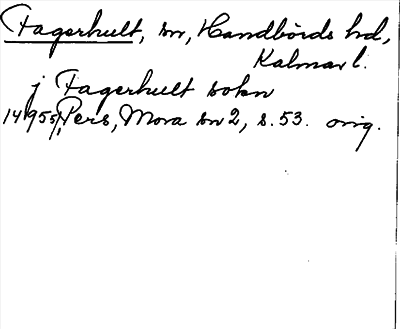 Fagerhult, sn, Handbörds hd,
Kalmar l.
j Fagerhult sokn
14/9 55, Pers, Mora sn 2, s. 53. orig.